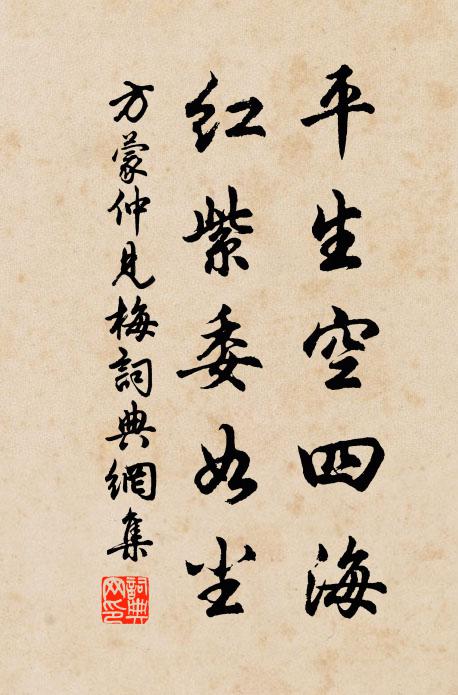 平生空四海
紅紫委如尘
方蒙仲見梅詞典網集
詞典网印